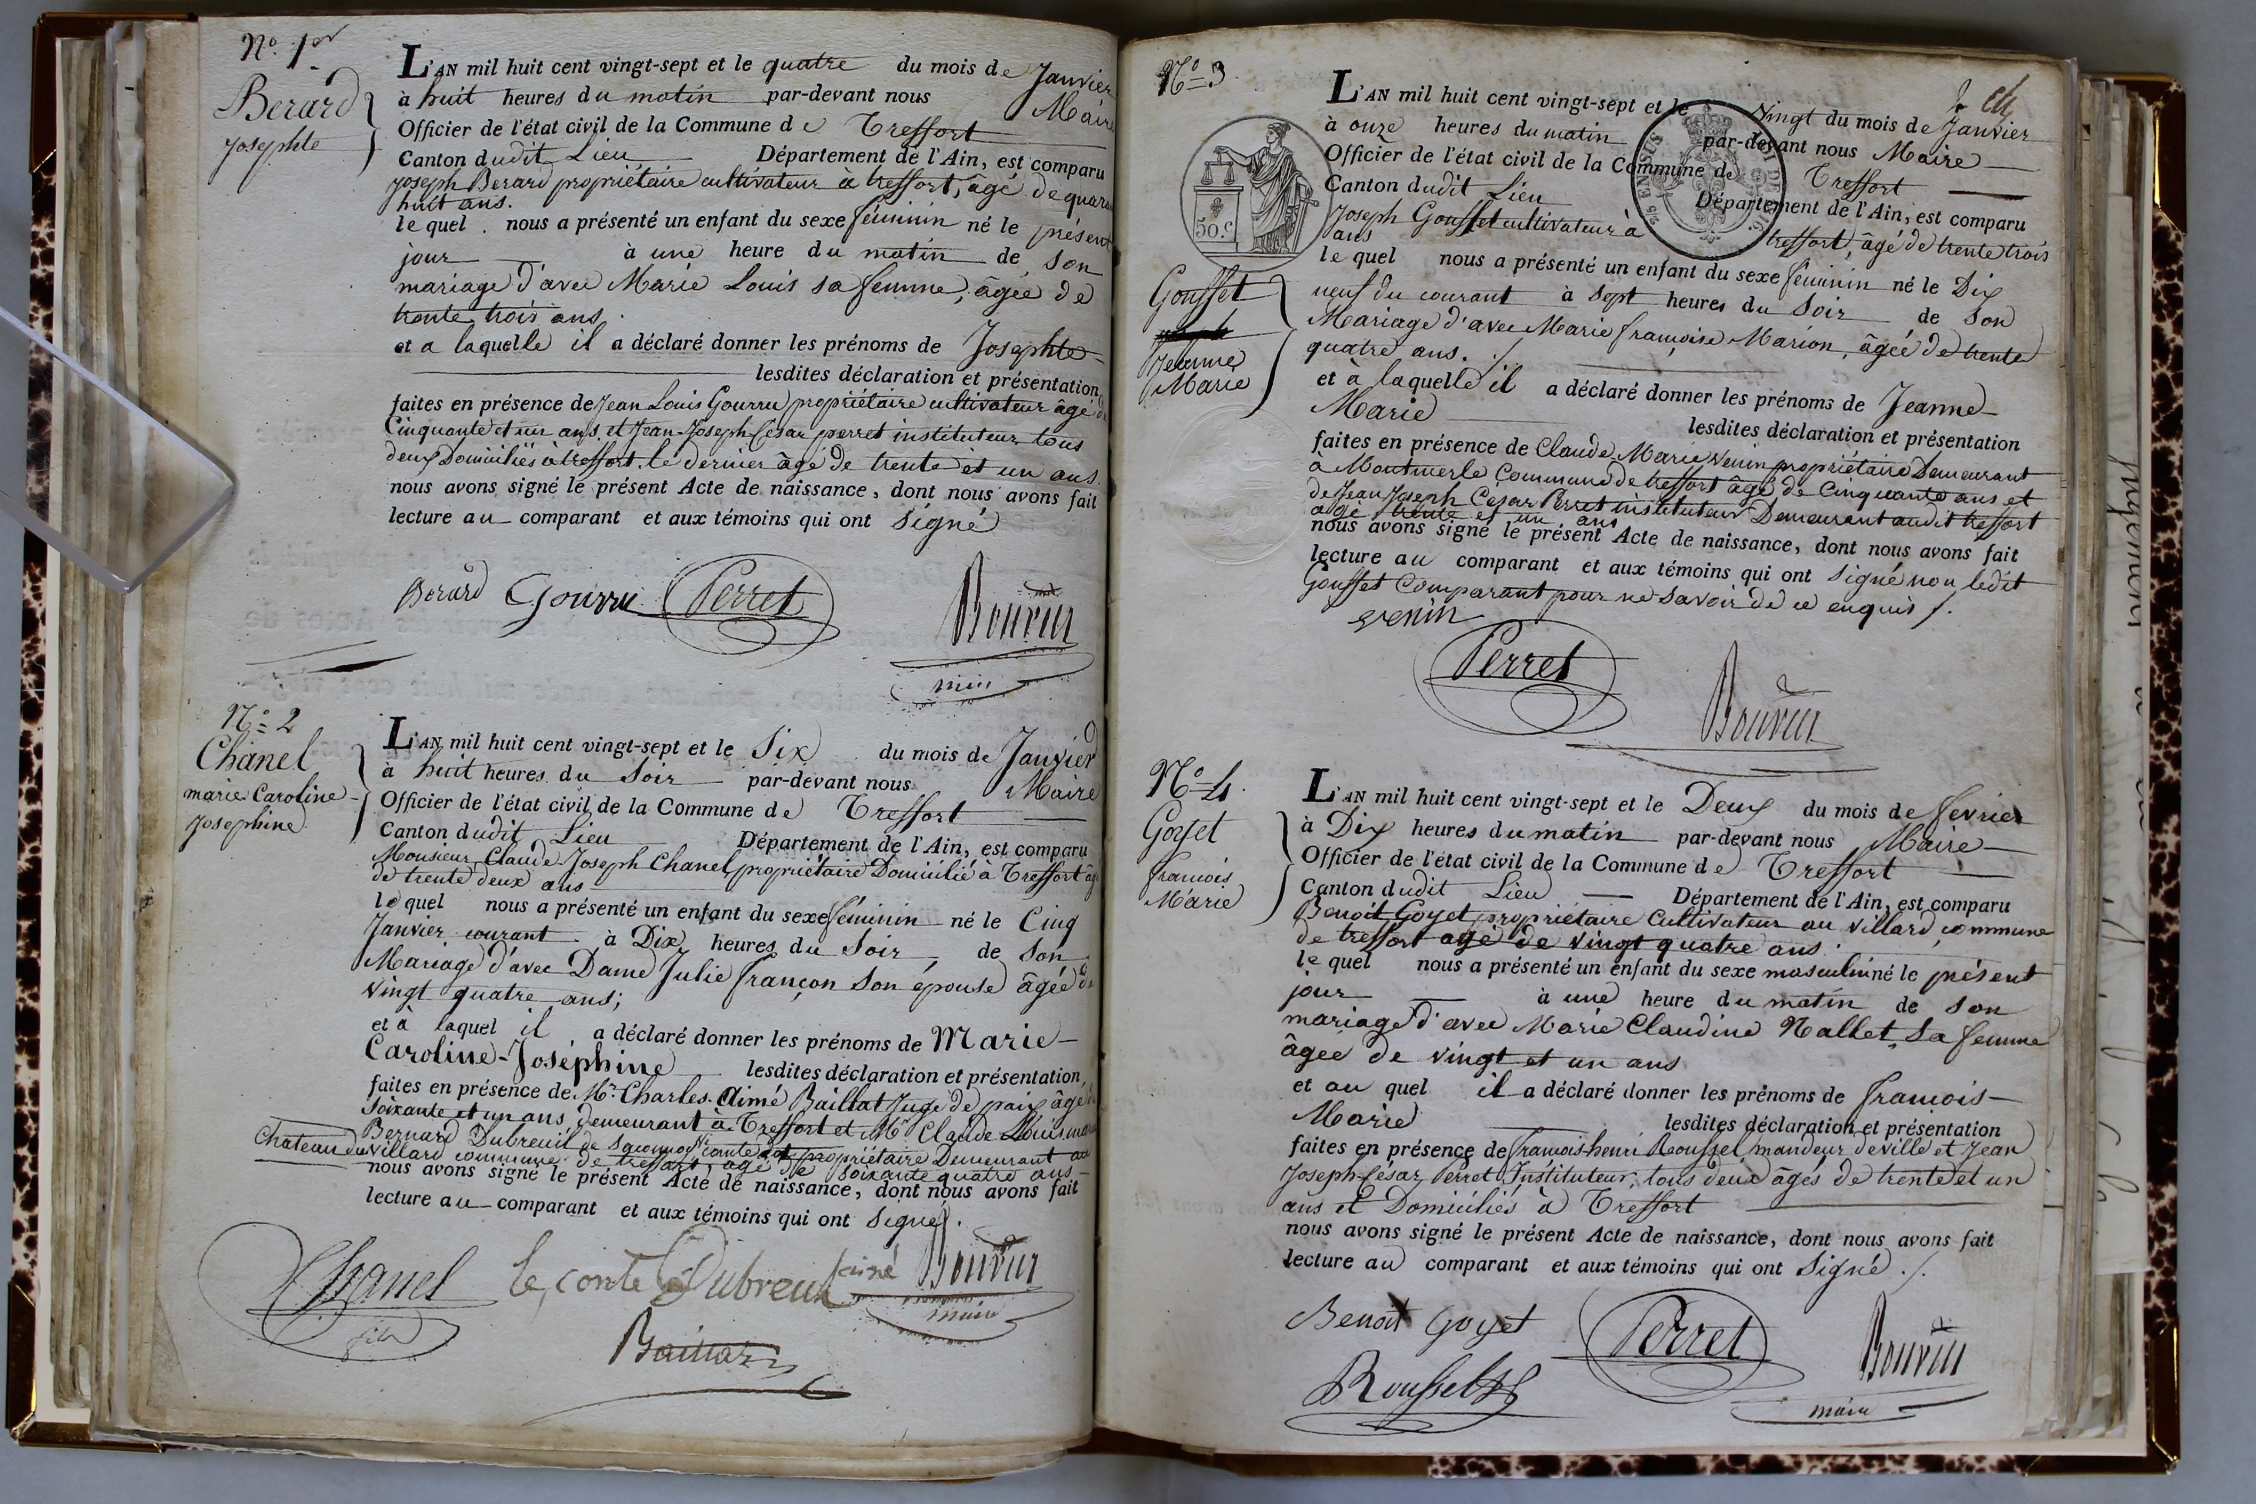 N° 1er
Berard
Josephte
L'AN mil huit cent vingt-sept et le quatre du mois de Janvier
à huit heures du matin par-devant nous Maire
Officier de l'état civil de la Commune de Treffort
Canton dudit Lieu Département de l'Ain, est comparu
Joseph Berard propriétaire cultivateur à treffort, âgé de
huit ans.
le quel nous a présenté un enfant du sexe féminin né le présent
jour à une heure du matin de son
mariage d'avec Marie Louis sa femme, âgée de
trente trois ans.
et a laquelle il a déclaré donner les prénoms de Josephte
lesdites déclaration et présentation
faites en présence de Jean Louis Gourru propriétaire cultivateur âgé de
Cinquante et un ans et Jean-Joseph César perret instituteur tous
deux Domiciliés à treffort. le dernier âgé de trente et un ans.
nous avons signé le présent Acte de naissance, dont nous avons fait
lecture au comparant et aux témoins qui ont Signé
Berard Gourru Perret Bouvier
N° 2
Chanel
marie Caroline
Josephine
L'AN mil huit cent vingt-sept et le Six du mois de Janvier
à huit heures du Soir par-devant nous Maire
Officier de l'état civil de la Commune de Treffort
Canton dudit Lieu Département de l'Ain, est comparu
Monsieur Claude Joseph Chanel, propriétaire Domicilié à Treffort âgé
de trente deux ans
le quel nous a présenté un enfant du sexe féminin né le Cinq
Janvier courant à Dix heures du Soir de Son
Mariage d'avec Dame Julie françon Son épouse âgée de
vingt quatre ans;
et à laquel il a déclaré donner les prénoms de Marie
Caroline-Joséphine lesdites déclaration et présentation,
faites en présence de Mr. Charles Aimé Baillat Juge de paix âgé de
soixante et un ans, demeurant à Treffort et Mr Claude Louis
Bernard Dubreuil de comte propriétaire Demeurant au
Chateau du villard commune de treffort, âgé de soixante quatre ans
nous avons signé le présent Acte de naissance, dont nous avons fait
lecture au comparant et aux témoins qui ont Signé.
Chanel le conte Dubreuil ainé Bouvier
fils maire
Baillat
N° 3
Gousset
Jeanne
Marie
50.c
L'AN mil huit cent vingt-sept et le Vingt du mois de Janvier
à onze heures du matin par-devant nous Maire
Officier de l'état civil de la Commune de Treffort
Canton dudit Lieu Département de l'Ain, est comparu
Joseph Gousset cultivateur à treffort, âgé de trente trois
ans
le quel nous a présenté un enfant du sexe féminin né le Dix
neuf du courant à Sept heures du Soir de Son
Mariage d'avec Marie françoise Marion, âgée de trente
quatre ans.
et à laquelle il a déclaré donner les prénoms de Jeanne
Marie lesdites déclaration et présentation
faites en présence de Claude Marie Venin propriétaire Demeurant
à Montmerle Commune de treffort âgé de Cinquante ans et
de Jean Joseph Cesar Perret instituteur Demeurant audit treffort
âgé trente et un ans
nous avons signé le présent Acte de naissance, dont nous avons fait
lecture au comparant et aux témoins qui ont Signé non ledit
Gousset Comparant pour ne Savoir de ce enquis /.
venin
Perret
Bouvier
N° 4.
Goyet
francois
Marie
L'AN mil huit cent vingt-sept et le Deux du mois de fevrier
à Dix heures du matin par-devant nous Maire
Officier de l'état civil de la Commune de Treffort
Canton dudit Lieu Département de l'Ain, est comparu
Benoit Goyet propriétaire Cultivateur au villard, commune
de treffort agé de vingt quatre ans.
le quel nous a présenté un enfant du sexe masculin né le présent
jour à une heure du matin de son
mariage d'avec Marie Claudine Nallet Sa femme
âgée de vingt et un ans
et au quel il a déclaré donner les prénoms de francois
Marie lesdites déclaration et présentation
faites en présence de francois-henri Roussel, mandeur de ville et Jean
Joseph-César Perret Instituteur, tous deux âgés de trente et un
ans et Domiciliés à Treffort
nous avons signé le présent Acte de naissance, dont nous avons fait
lecture au comparant et aux témoins qui ont Signé ./.
Benoit Goyet Perret Bouvier
Roussel maire